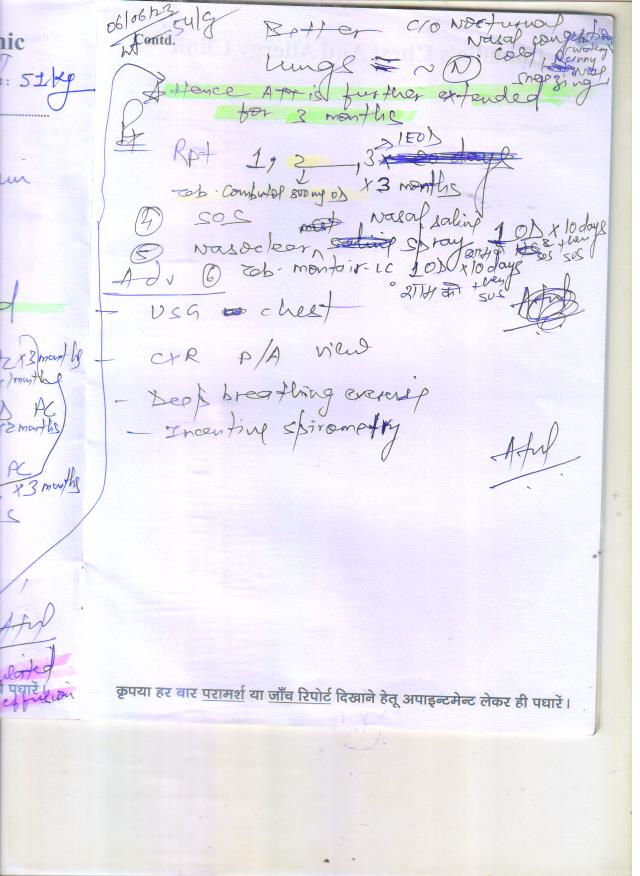 06/06/23
54/g
Better
C/O Nocturnal
Nasal congestion
nic
Contd.
wt
cold
Lungs = ~ N
watery
Runny
sneezing
: 51/kg
Hence ATT is further extended
for 3 months
Rx
Rpt 1, 2, 3
IEOD
20 days
Tab. Combutol 800mg OD × 3 months
④ SOS Nasal saline
⑤ Nasoclear spray 1 OD × 10 days
SOS
Adv ⑥ Tab. montair-LC 1 OD × 10 days
शाम को
SOS
- USG chest
× 3 months
- CXR P/A view
AC
- Deep breathing exercise
2 months
- Incentive spirometry
AC
× 3 months
Atul
Atul
effusion
पधारें।
कृपया हर बार परामर्श या जाँच रिपोर्ट दिखाने हेतू अपाइन्टमेन्ट लेकर ही पधारें।